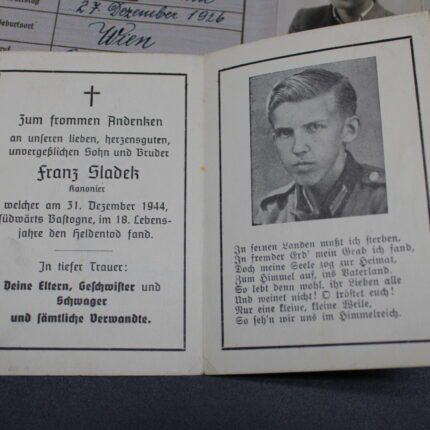 27. Dezember 1926
Wien
Zum frommen Andenken
an unseren lieben, herzensguten,
unvergeßlichen Sohn und Bruder
Franz Sladek
Kanonier
welcher am 31. Dezember 1944,
südwärts Bastogne, im 18. Lebens-
jahre den Heldentod fand.
In tiefer Trauer:
Deine Eltern, Geschwister und
Schwager
und sämtliche Verwandte.
In fernen Landen mußt ich sterben,
In fremder Erd' mein Grab ich fand,
Doch meine Seele zog zur Heimat,
Zum Himmel auf, ins Vaterland.
So lebt denn wohl, ihr Lieben alle
Und weinet nicht! O tröstet euch!
Nur eine kleine, kleine Weile,
So seh'n wir uns im Himmelreich.